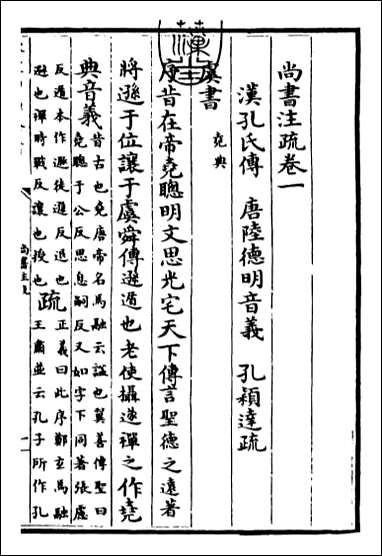 尚書注疏卷一
漢孔氏傳 唐陸德明音義 孔穎達疏
虞書
堯典
序昔在帝堯聰明文思光宅天下傳言聖德之遠著
將遜于位讓于虞舜傳遜遁也老使攝遂禪之作堯
典音義昔古也堯唐帝名馬融云諡也翼善傳聖曰
堯聰于公反思息嗣反又如字下同著張慮
反遁本作遯徒遜反退也
避也禪時戰反讓也授也
疏正義曰此序鄭玄馬融
王肅並云孔子所作孔
尚書注疏